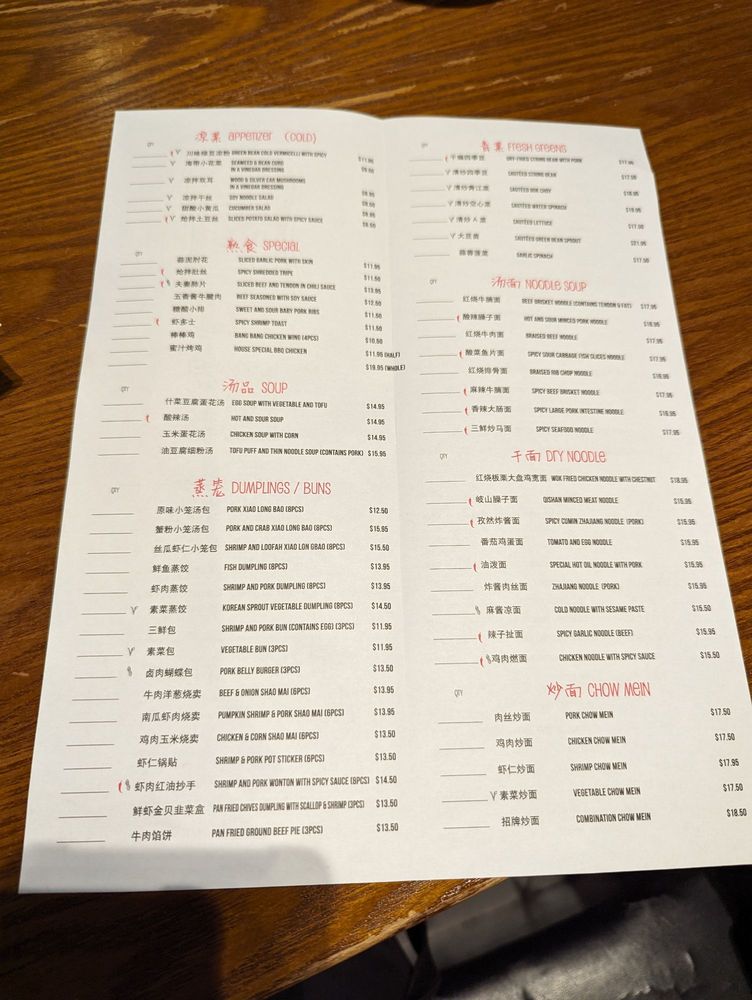 凉菜 APPETIZER (COLD)
QTY
V 川味绿豆凉粉 GREEN BEAN COLD VERMICELLI WITH SPICY $11.95
V 海带小花菜 SEAWEED & BEAN CURD IN A VINEGAR DRESSING
V 凉拌双耳 WOOD & SILVER EAR MUSHROOMS IN A VINEGAR DRESSING
V 凉拌干丝 SOY NOODLE SALAD
V 甜酸小黄瓜 CUCUMBER SALAD
V 炝拌土豆丝 SLICED POTATO SALAD WITH SPICY SAUCE
熟食 SPECIAL
QTY
蒜泥肘花 SLICED GARLIC PORK WITH SKIN $11.95
炝拌肚丝 SPICY SHREDDED TRIPE $11.50
夫妻肺片 SLICED BEEF AND TENDON IN CHILI SAUCE $13.95
五香酱牛腱肉 BEEF SEASONED WITH SOY SAUCE $12.50
糖醋小排 SWEET AND SOUR BABY PORK RIBS $11.50
虾多士 SPICY SHRIMP TOAST $11.50
棒棒鸡 BANG BANG CHICKEN WING (4PCS) $10.50
蜜汁烤鸡 HOUSE SPECIAL BBQ CHICKEN $11.95 (HALF)
$19.95 (WHOLE)
汤品 SOUP
QTY
什菜豆腐蛋花汤 EGG SOUP WITH VEGETABLE AND TOFU $14.95
酸辣汤 HOT AND SOUR SOUP $14.95
玉米蛋花汤 CHICKEN SOUP WITH CORN $14.95
油豆腐细粉汤 TOFU PUFF AND THIN NOODLE SOUP (CONTAINS PORK) $15.95
蒸笼 DUMPLINGS / BUNS
QTY
原味小笼汤包 PORK XIAO LONG BAO (8PCS) $12.50
蟹粉小笼汤包 PORK AND CRAB XIAO LONG BAO (8PCS) $15.95
丝瓜虾仁小笼包 SHRIMP AND LOOFAH XIAO LON GBAO (8PCS) $15.50
鲜鱼蒸饺 FISH DUMPLING (8PCS) $13.95
虾肉蒸饺 SHRIMP AND PORK DUMPLING (8PCS) $13.95
V 素菜蒸饺 KOREAN SPROUT VEGETABLE DUMPLING (8PCS) $14.50
三鲜包 SHRIMP AND PORK BUN (CONTAINS EGG) (3PCS) $11.95
V 素菜包 VEGETABLE BUN (3PCS) $11.95
卤肉蝴蝶包 PORK BELLY BURGER (3PCS) $13.50
牛肉洋葱烧卖 BEEF & ONION SHAO MAI (6PCS) $13.95
南瓜虾肉烧卖 PUMPKIN SHRIMP & PORK SHAO MAI (6PCS) $13.95
鸡肉玉米烧卖 CHICKEN & CORN SHAO MAI (6PCS) $13.50
虾仁锅贴 SHRIMP & PORK POT STICKER (6PCS) $13.50
虾肉红油抄手 SHRIMP AND PORK WONTON WITH SPICY SAUCE (8PCS) $14.50
鲜虾金贝韭菜盒 PAN FRIED CHIVES DUMPLING WITH SCALLOP & SHRIMP (3PCS) $13.50
牛肉馅饼 PAN FRIED GROUND BEEF PIE (3PCS) $13.50
青菜 FRESH GREENS
QTY
干煸四季豆 DRY-FRIED STRING BEAN WITH PORK $17.95
V 清炒四季豆 SAUTÉED STRING BEAN $17.50
V 清炒青江菜 SAUTÉED BOK CHOY
V 清炒空心菜 SAUTÉED WATER SPINACH
V 清炒A菜 SAUTÉED LETTUCE
V 大豆苗 SAUTÉED GREEN BEAN SPROUT $21.95
蒜蓉菠菜 GARLIC SPINACH $17.50
汤面 NOODLE SOUP
QTY
红烧牛腩面 BEEF BRISKET NOODLE (CONTAINS TENDON & FAT) $17.95
酸辣臊子面 HOT AND SOUR MINCED PORK NOODLE $16.95
红烧牛肉面 BRAISED BEEF NOODLE $17.95
酸菜鱼片面 SPICY SOUR CABBAGE FISH SLICES NOODLE $17.95
红烧排骨面 BRAISED RIB CHOP NOODLE $16.95
麻辣牛腩面 SPICY BEEF BRISKET NOODLE $17.95
香辣大肠面 SPICY LARGE PORK INTESTINE NOODLE $16.95
三鲜炒马面 SPICY SEAFOOD NOODLE $17.95
干面 DRY NOODLE
QTY
红烧板栗大盘鸡宽面 WOK FRIED CHICKEN NOODLE WITH CHESTNUT $18.95
岐山臊子面 QISHAN MINCED MEAT NOODLE $15.95
孜然炸酱面 SPICY CUMIN ZHAJIANG NOODLE (PORK) $15.95
番茄鸡蛋面 TOMATO AND EGG NOODLE $15.95
油泼面 SPECIAL HOT OIL NOODLE WITH PORK $15.95
炸酱肉丝面 ZHAJIANG NOODLE (PORK) $15.95
麻酱凉面 COLD NOODLE WITH SESAME PASTE $15.50
辣子扯面 SPICY GARLIC NOODLE (BEEF) $15.95
鸡肉燃面 CHICKEN NOODLE WITH SPICY SAUCE $15.50
炒面 CHOW MEIN
QTY
肉丝炒面 PORK CHOW MEIN $17.50
鸡肉炒面 CHICKEN CHOW MEIN $17.50
虾仁炒面 SHRIMP CHOW MEIN $17.95
V 素菜炒面 VEGETABLE CHOW MEIN $17.50
招牌炒面 COMBINATION CHOW MEIN $18.50